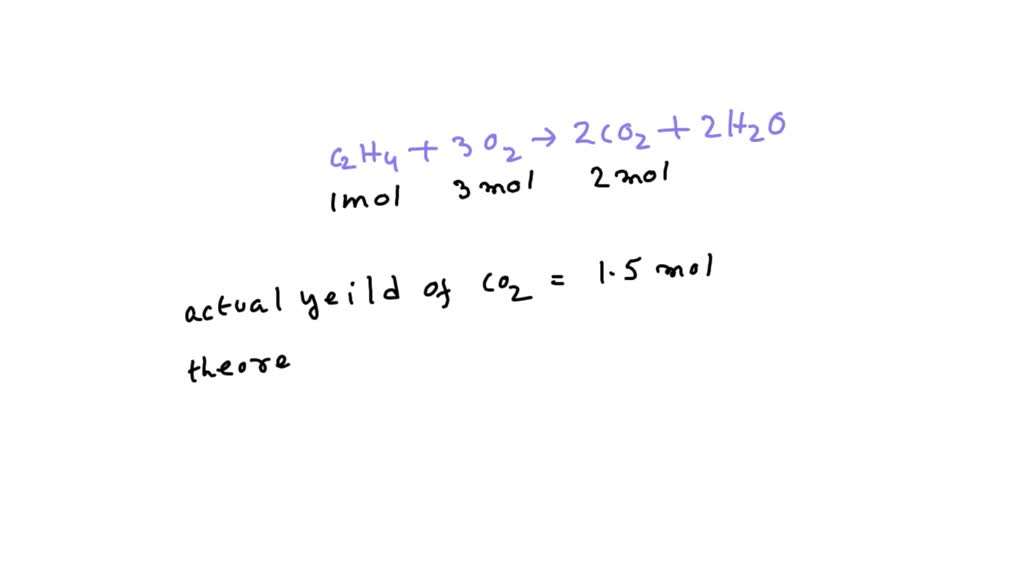 C2H4 + 3O2 → 2CO2 + 2H2O
1mol 3mol 2mol
actual yeild of CO2 = 1.5 mol
theore